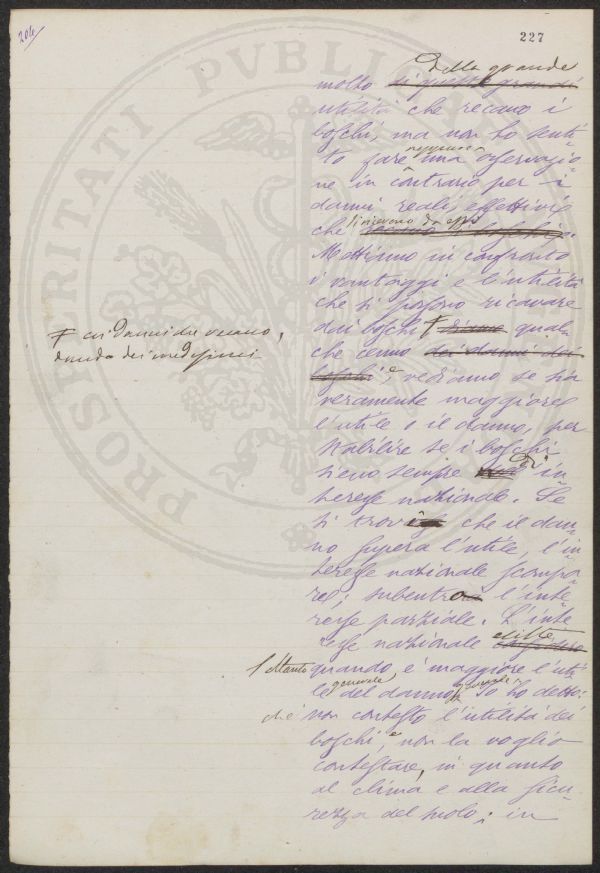 204
227
della grande
molto si queste grandi
utilità che recano i
boschi, ma non ho senti-
to fare neppure una osservazio-
ne in contrario per i
danni reali, effettivi
che si ricevono da essi
Mettiamo in confronto
i vantaggi e l'utilità
che si possono ricavare
dai boschi F diamo qual-
che cenno dei danni dei
boschi, e vediamo se sia
veramente maggiore
l'utile o il danno, per
stabilire se i boschi
sieno sempre di in-
teresse nazionale. Se
si trova che il dan-
no supera l'utile, l'in-
teresse nazionale scompa-
re; subentra l'inte-
resse parziale. L'inte-
resse nazionale esiste
soltanto quando è maggiore l'uti-
le generale del danno generale. Io ho detto:
che non contesto l'utilità dei
boschi, e non la voglio
contestare, in quanto
al clima e alla sicu-
rezza del suolo; in
F coi danni che recano,
dando dei medesimi
PROSPERITATI PVBLICAE